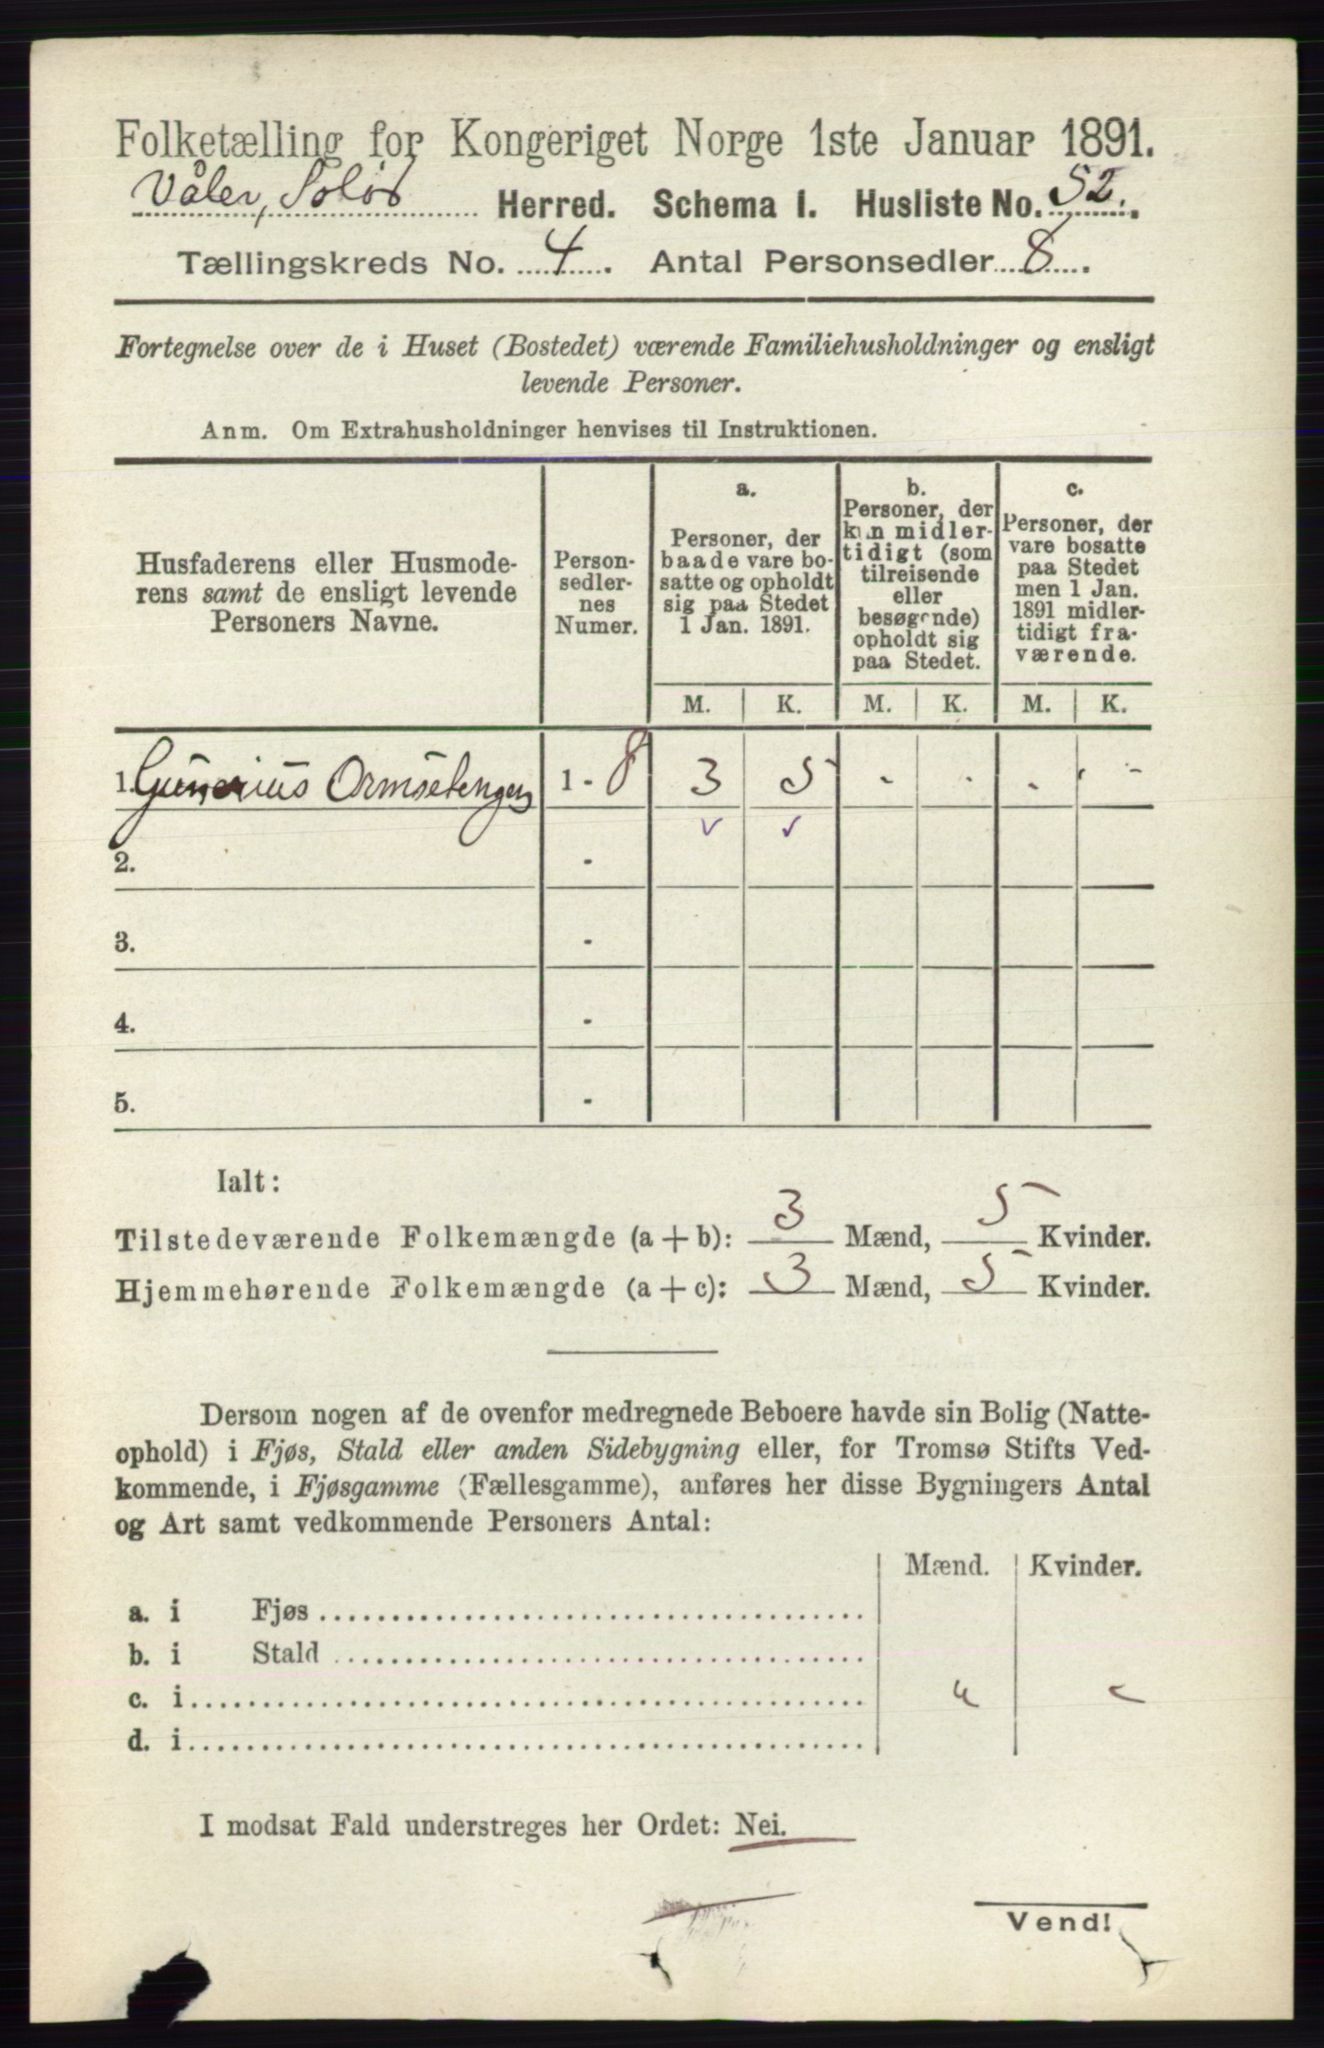 Folketælling for Kongeriget Norge 1ste Januar 1891.
Våler, Solør Herred. Schema I. Husliste No. 52.
Tællingskreds No. 4. Antal Personsedler 8.
Fortegnelse over de i Huset (Bostedet) værende Familiehusholdninger og ensligt
levende Personer.
Anm. Om Extrahusholdninger henvises til Instruktionen.
Husfaderens eller Husmode-
rens samt de ensligt levende
Personers Navne.
Person-
sedler-
nes
Numer.
a.
Personer, der
baade vare bo-
satte og opholdt
sig paa Stedet
1 Jan. 1891.
b.
Personer, der
kun midler-
tidigt (som
tilreisende
eller
besøgende)
opholdt sig
paa Stedet.
c.
Personer, der
vare bosatte
paa Stedet
men 1 Jan.
1891 midler-
tidigt fra-
værende.
M. K. M. K. M. K.
1. Gunerius Ormsetengen 1 - 8 3 5 - - - -
2. -
3. -
4. -
5. -
Ialt:
Tilstedeværende Folkemængde (a + b): 3 Mænd, 5 Kvinder.
Hjemmehørende Folkemængde (a + c): 3 Mænd, 5 Kvinder.
Dersom nogen af de ovenfor medregnede Beboere havde sin Bolig (Natte-
ophold) i Fjøs, Stald eller anden Sidebygning eller, for Tromsø Stifts Ved-
kommende, i Fjøsgamme (Fællesgamme), anføres her disse Bygningers Antal
og Art samt vedkommende Personers Antal:
Mænd. Kvinder.
a. i Fjøs
b. i Stald
c. i
d. i
I modsat Fald understreges her Ordet: Nei.
Vend!